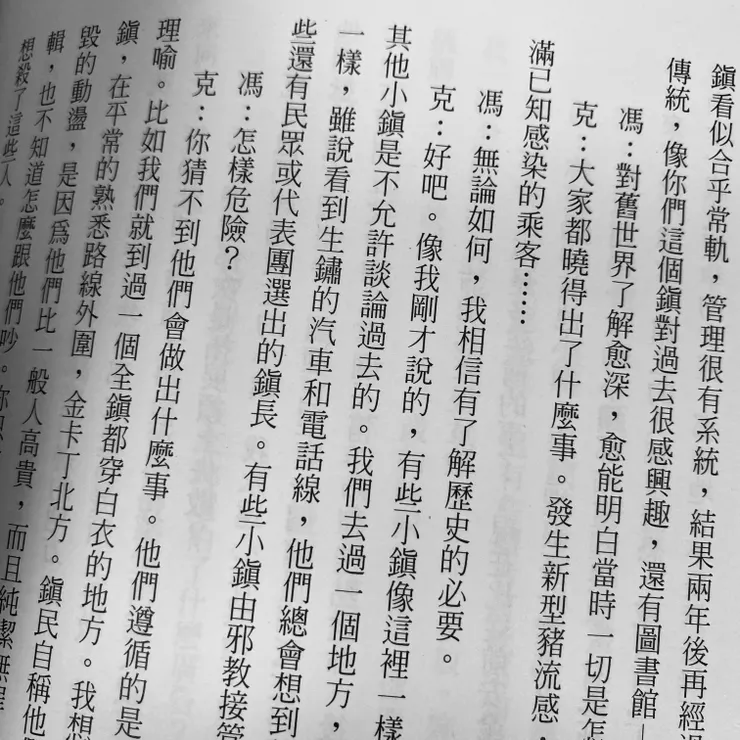 鎮看似合乎常軌，管理很有系統，結果兩年後再經過
傳統，像你們這個鎮對過去很感興趣，還有圖書館—
馮：對舊世界了解愈深，愈能明白當時一切是怎
克：大家都曉得出了什麼事。發生新型豬流感，
滿已知感染的乘客……
馮：無論如何，我相信有了解歷史的必要。
克：好吧。像我剛才說的，有些小鎮像這裡一樣
其他小鎮是不允許談論過去的。我們去過一個地方，
一樣，雖說看到生鏽的汽車和電話線，他們總會想到
些還有民眾或代表團選出的鎮長。有些小鎮由邪教接管
馮：怎樣危險？
克：你猜不到他們會做出什麼事。他們遵循的是
理喻。比如我們就到過一個全鎮都穿白衣的地方。我想
鎮，在平常的熟悉路線外圍，金卡丁北方。鎮民自稱他
毀的動盪，是因為他們比一般人高貴，而且純潔無
輯，也不知道怎麼跟他們吵。你
想殺了這些人。